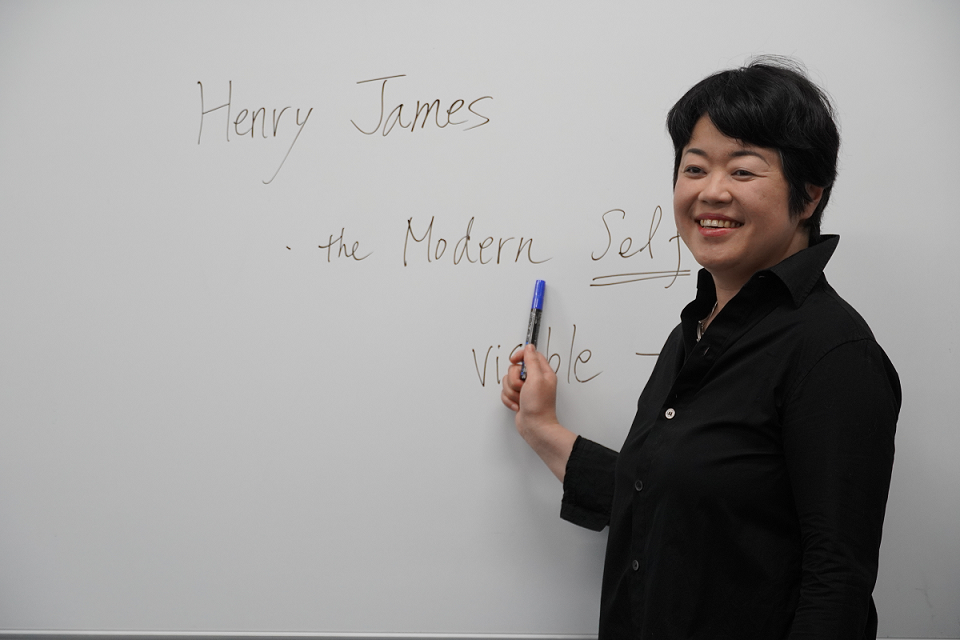 Henry James
· the Modern Self
visible –